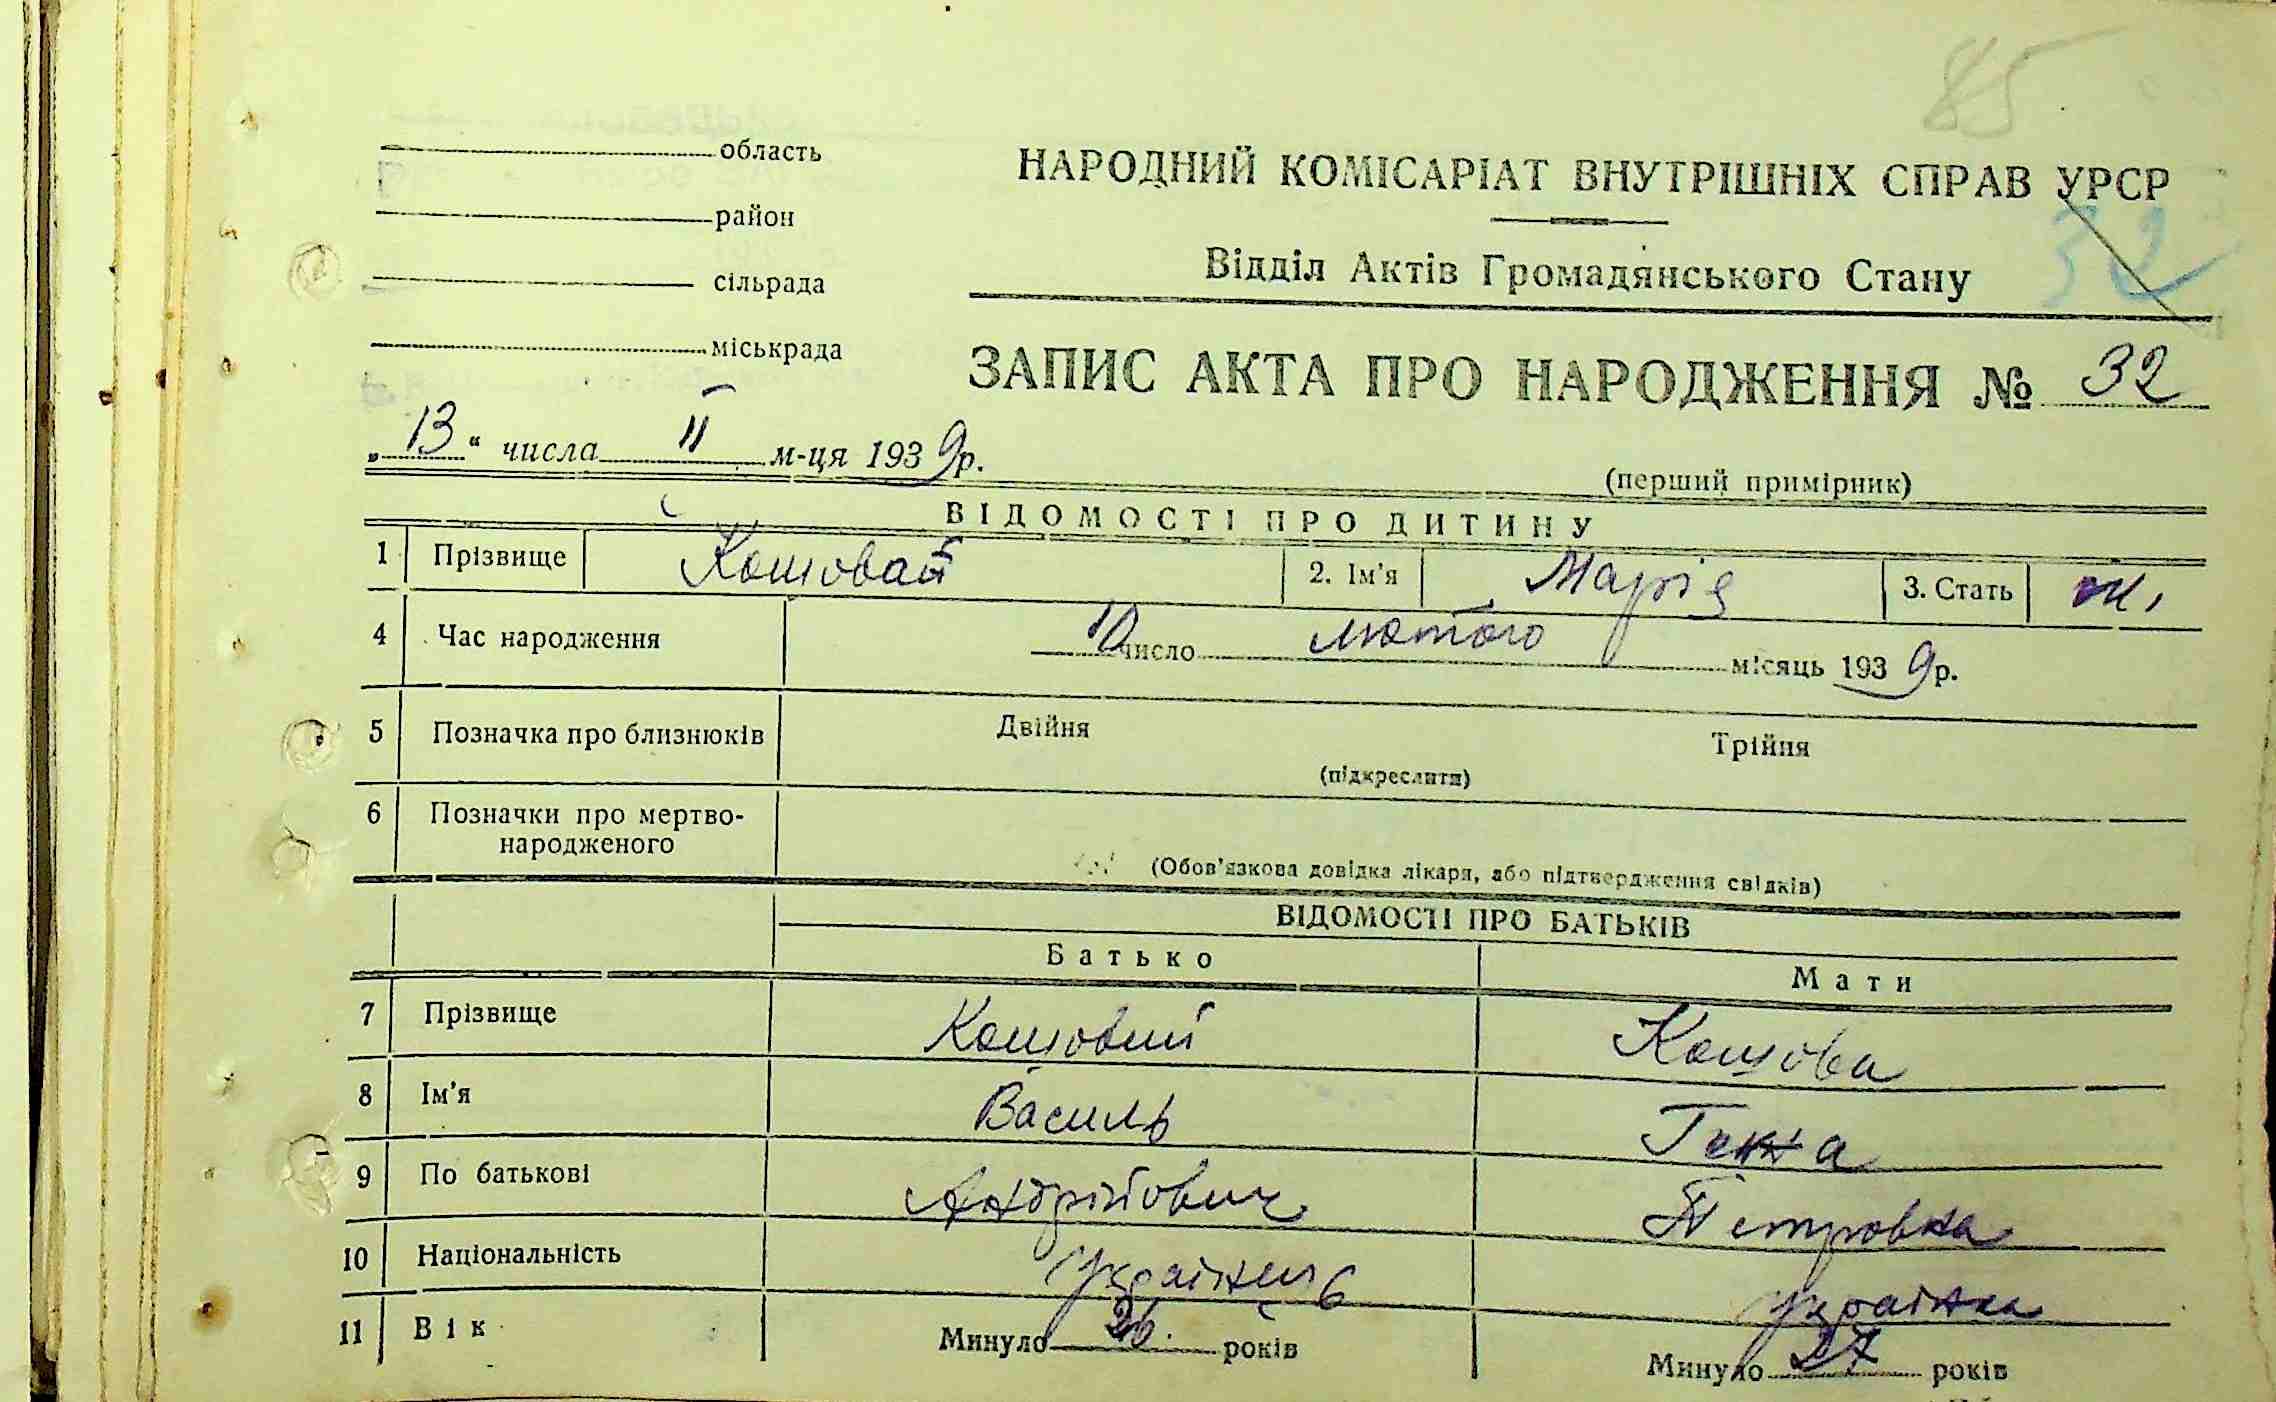 85
область
НАРОДНИЙ КОМІСАРІАТ ВНУТРІШНІХ СПРАВ УРСР
район
32
Відділ Актів Громадянського Стану
сільрада
міськрада
ЗАПИС АКТА ПРО НАРОДЖЕННЯ № 32
„13“ числа II м-ця 1939р.
(перший примірник)
ВІДОМОСТІ ПРО ДИТИНУ
1 Прізвище 2. Ім'я Марія 3. Стать ж.
4 Час народження 10 число лютого місяць 1939р.
5 Позначка про близнюків Двійня Трійня
(підкреслити)
6 Позначки про мертво-
народженого
(Обов'язкова довідка лікаря, або підтвердження свідків)
ВІДОМОСТІ ПРО БАТЬКІВ
Батько Мати
7 Прізвище Кошовий Кошова
8 Ім'я Василь
9 По батькові Андрійович Петровна
10 Національність українець українка
11 Вік Минуло 26. років Минуло 27 років